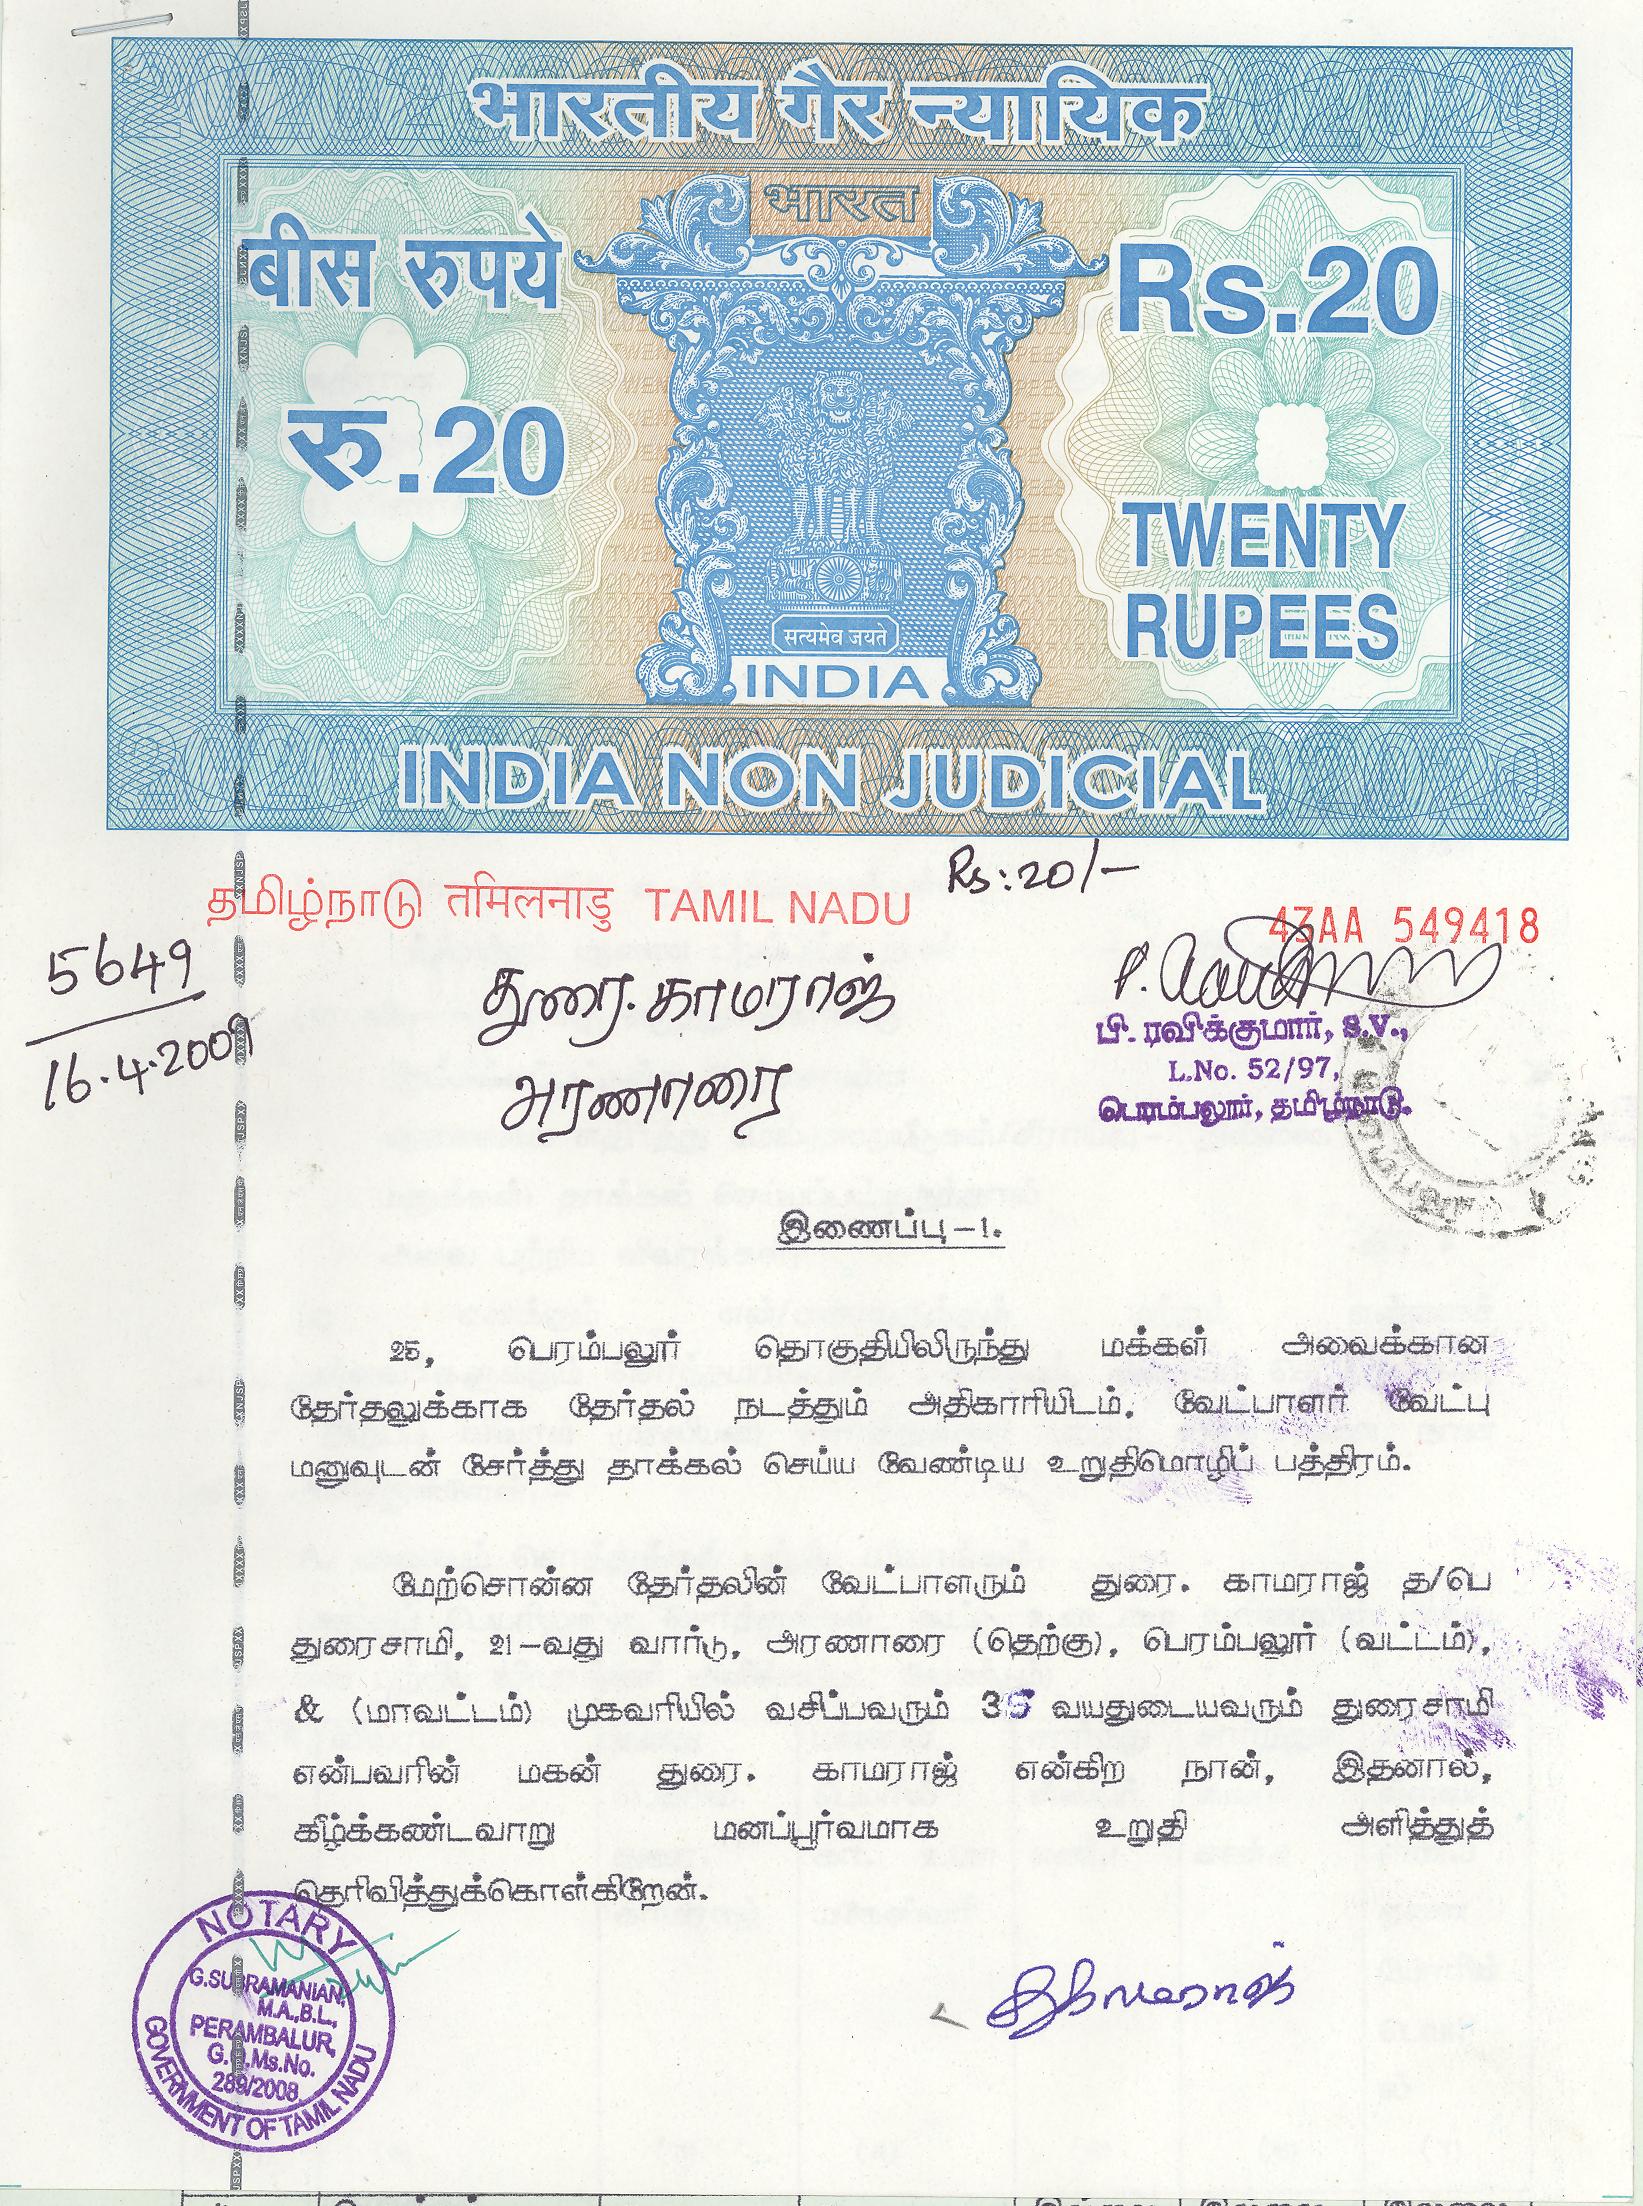 भारतीय गैर न्यायिक
भारत
बीस रुपये
Rs.20
रु.20
TWENTY
RUPEES
सत्यमेव जयते
INDIA
INDIA NON JUDICIAL
Rs:20/-
தமிழ்நாடு तमिलनाडु TAMIL NADU
43AA 549418
5649
16.4.2009
துரை.காமராஜ்
அரணாரை
பி. ரவிக்குமார், S.V.,
L.No. 52/97,
பெரம்பலூர், தமிழ்நாடு.
இணைப்பு-1.
25, பெரம்பலூர் தொகுதியிலிருந்து மக்கள் அவைக்கான
தேர்தலுக்காக தேர்தல் நடத்தும் அதிகாரியிடம், வேட்பாளர் வேட்பு
மனுவுடன் சேர்த்து தாக்கல் செய்ய வேண்டிய உறுதிமொழிப் பத்திரம்.
மேற்சொன்ன தேர்தலின் வேட்பாளரும் துரை. காமராஜ் த/பெ
துரைசாமி, 21-வது வார்டு, அரணாரை (தெற்கு), பெரம்பலூர் (வட்டம்),
& (மாவட்டம்) முகவரியில் வசிப்பவரும் 35 வயதுடையவரும் துரைசாமி
என்பவரின் மகன் துரை. காமராஜ் என்கிற நான், இதனால்,
கீழ்க்கண்டவாறு மனப்பூர்வமாக உறுதி அளித்துத்
தெரிவித்துக்கொள்கிறேன்.
NOTARY
G.SUBRAMANIAN,
M.A.,B.L.,
PERAMBALUR,
G.O.Ms.No.
289/2008
GOVERNMENT OF TAMIL NADU